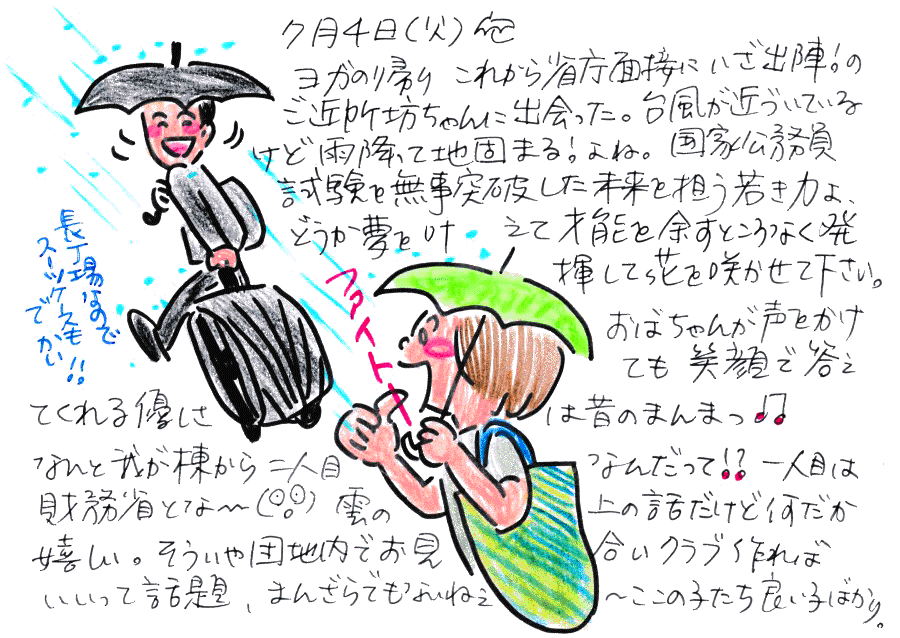 7月4日(火)
ヨガの帰り これから省庁面接にいざ出陣!の
ご近所坊ちゃんに出会った。台風が近づいている
けど雨降って地固まる!よね。国家公務員
試験を無事突破した未来を担う若き力よ、
どうか夢を叶えて才能を余すところなく発
揮してって花を咲かせて下さい。
おばちゃんが声をかけ
ても笑顔で答え
てくれる優しさは昔のまんまっ♫
なんと我が棟から二人目なんだって!? 一人目は
財務省とな〜 雲の上の話だけど何だか
嬉しい。そういや団地内でお見合いクラブ作れば
いいって話題、まんざらでもないねぇ〜ここの子たち良い子ばかり。
長丁場なので
スーツケースも
でかい!!
ファイトー